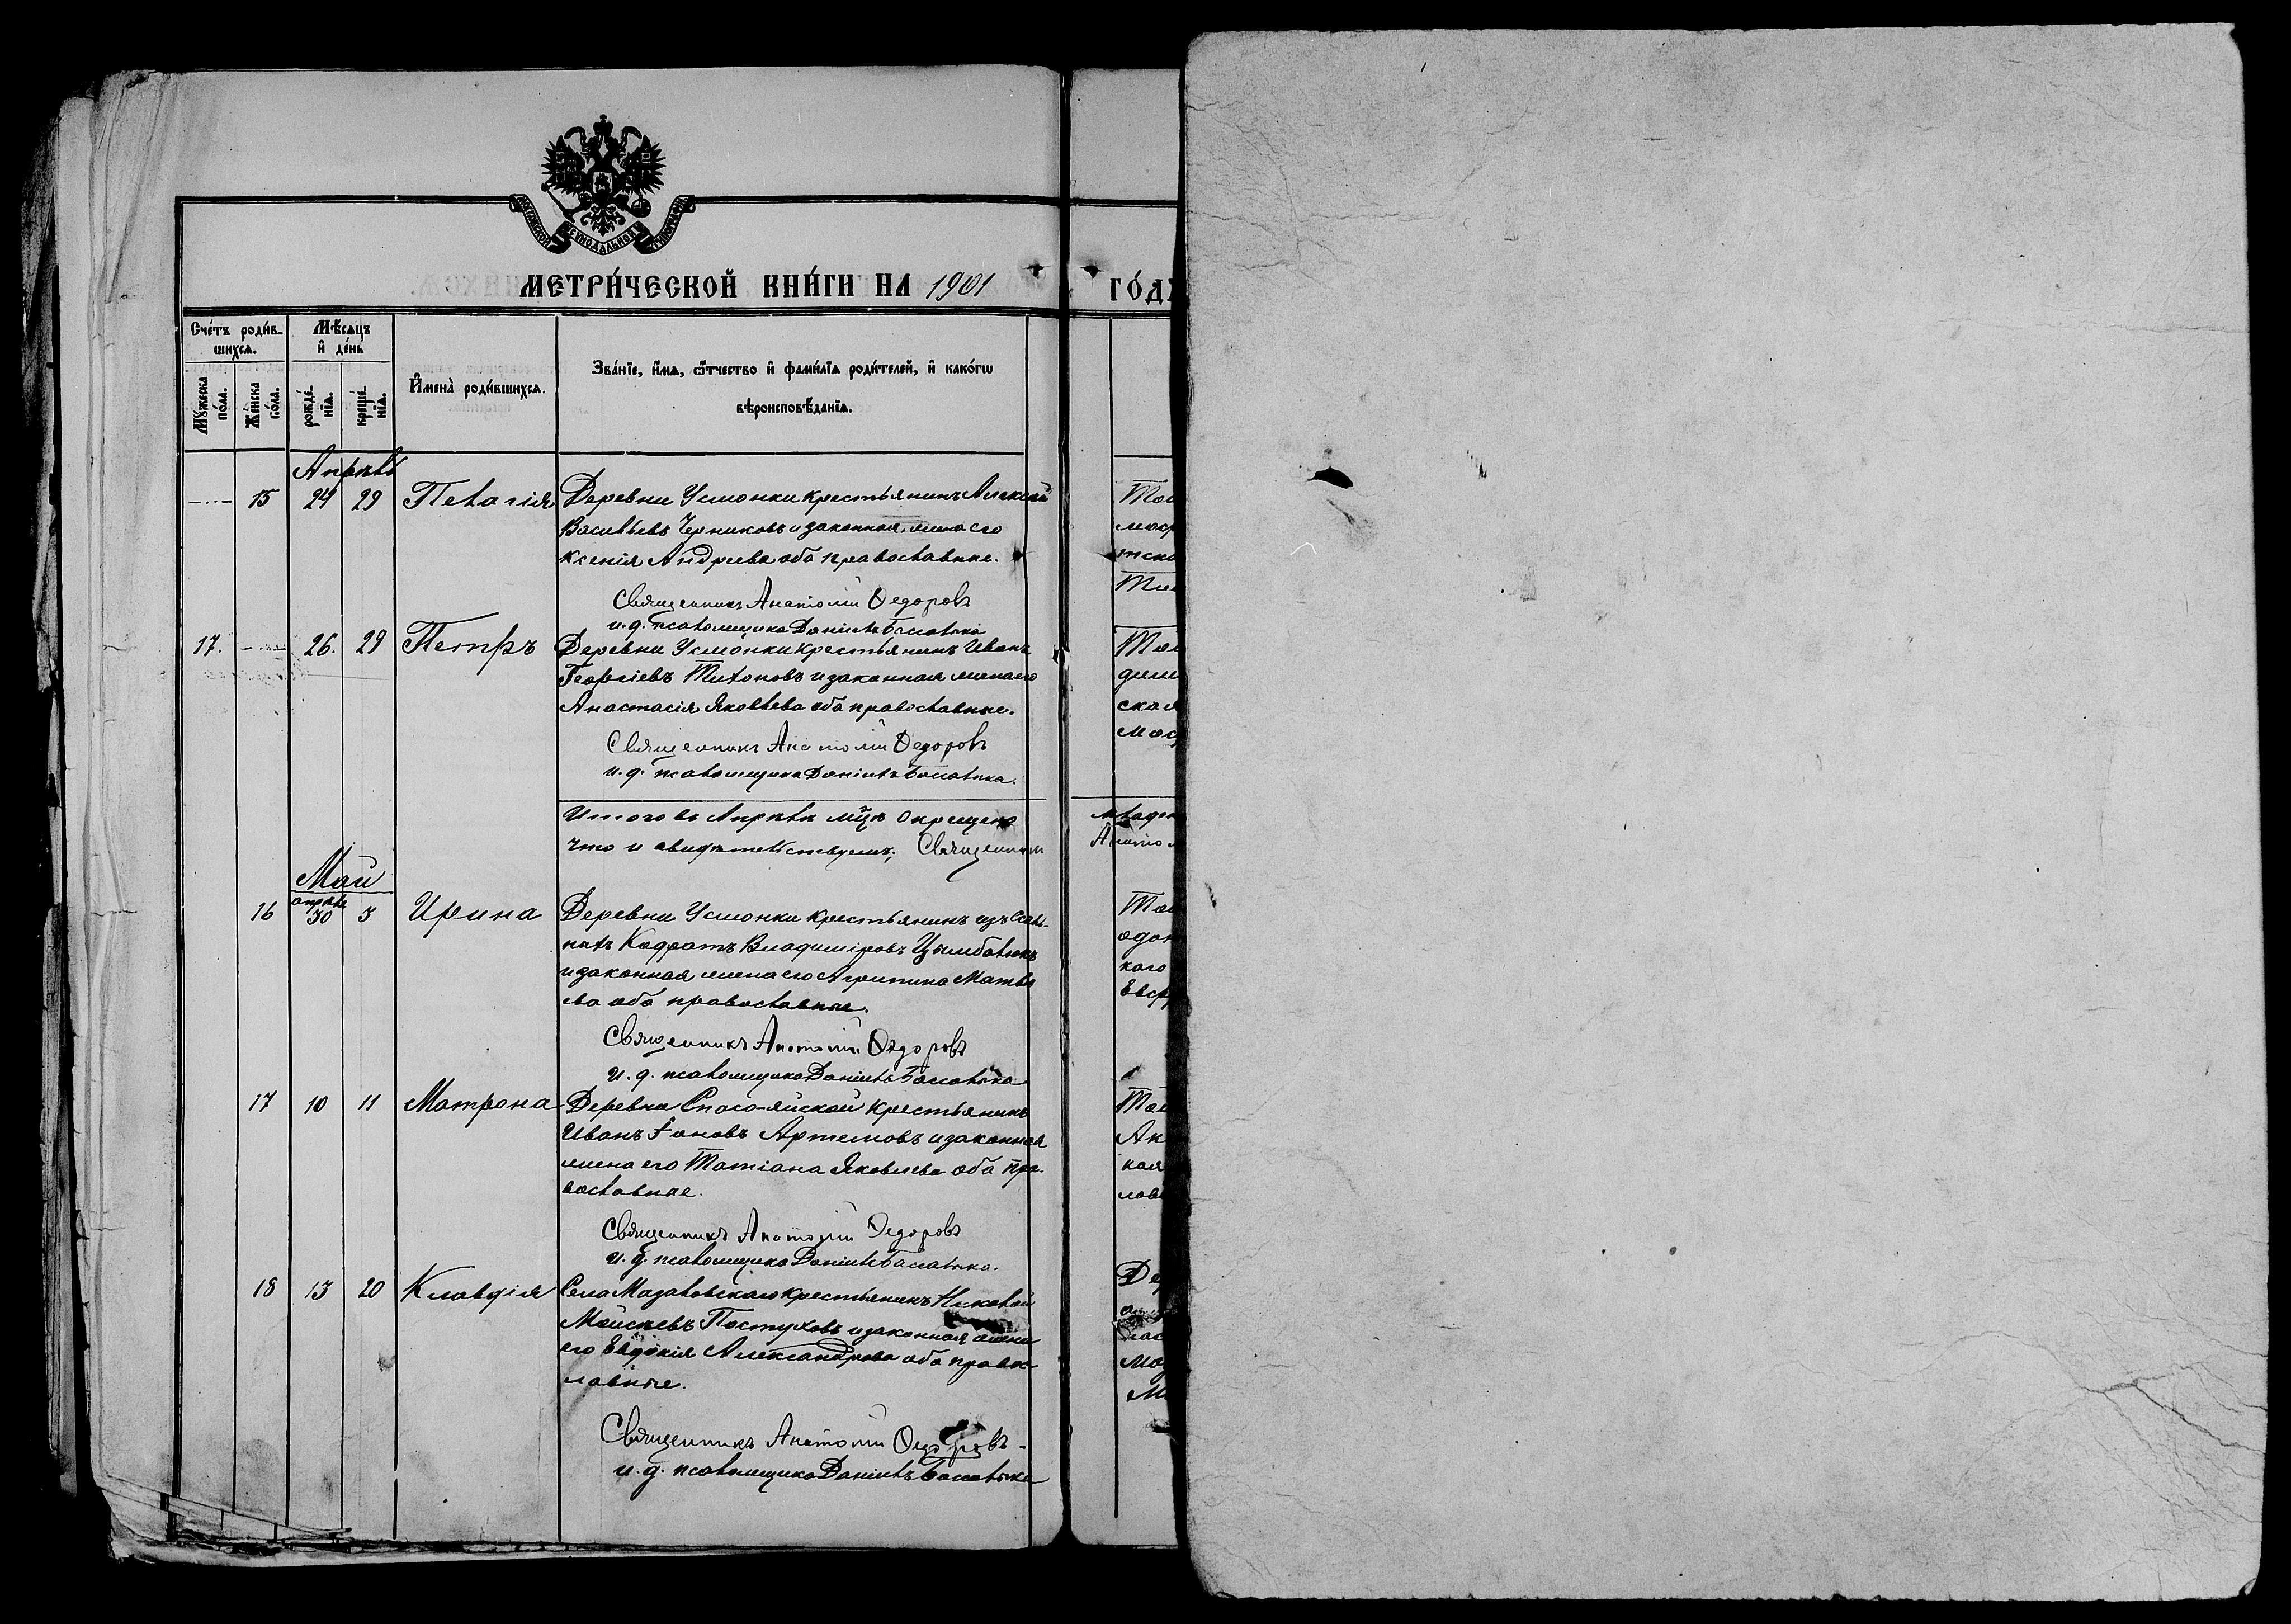 МЕТРИ́ЧЕСКОЙ КНИ́ГИ НА 1901
ГО́ДЪ
Сче́тъ роди́в-
шихсѧ.
Мѣ́сѧцъ
и҆ де́нь
Му́жеска
по́ла.
Же́нска
по́ла.
рожде́-
нїѧ.
креще́-
нїѧ.
И҆мена̀ роди́вшихсѧ.
Зва́нїе, и҆́мѧ, ѻ҆́тчество и҆ фами́лїѧ роди́телей, и҆ како́гѡ
вѣроисповѣ́данїѧ.
Апрѣль
15 24 29 Пелагія Деревни Услонки крестьянинъ Алексѣй
Васильевъ Черниковъ и законная жена его
Ксенія Андреева оба православные.
Священникъ Анатолій Ѳедоровъ
и. д. псаломщика Даніилъ
17. 26. 29 Петръ Деревни Услонки крестьянинъ Иванъ
Георгіевъ Тихоновъ и законная жена его
Анастасія Яковлева оба православные.
Священникъ Анатолій Ѳедоровъ
и. д. псаломщика Даніилъ
Итого въ Апрѣлѣ мцѣ окрещено
что и свидѣтельствуемъ; Священникъ
Май
апрѣля
16 30 3 Ирина Деревни Услонки крестьянинъ изъ
Кодратъ Владиміровъ Цымбалюкъ
и законная жена его Агрипина Матвѣ
ева оба православные.
Священникъ Анатолій Ѳедоровъ
и. д. псаломщика Даніилъ
17 10 11 Матрона Деревни Спасо-яйской крестьянинъ
Иванъ Артемовъ и законная
жена его Татіана Яковлева оба пра-
вославные.
Священникъ Анатолій Ѳедоровъ
и. д. псаломщика Даніилъ
18 13 20 Клавдія Села Мазаловскаго крестьянинъ Николай
Моисѣевъ Пастуховъ и законная жена
его Евдокія Александрова оба правос-
лавные.
Священникъ Анатолій Ѳедоровъ
и. д. псаломщика Даніилъ